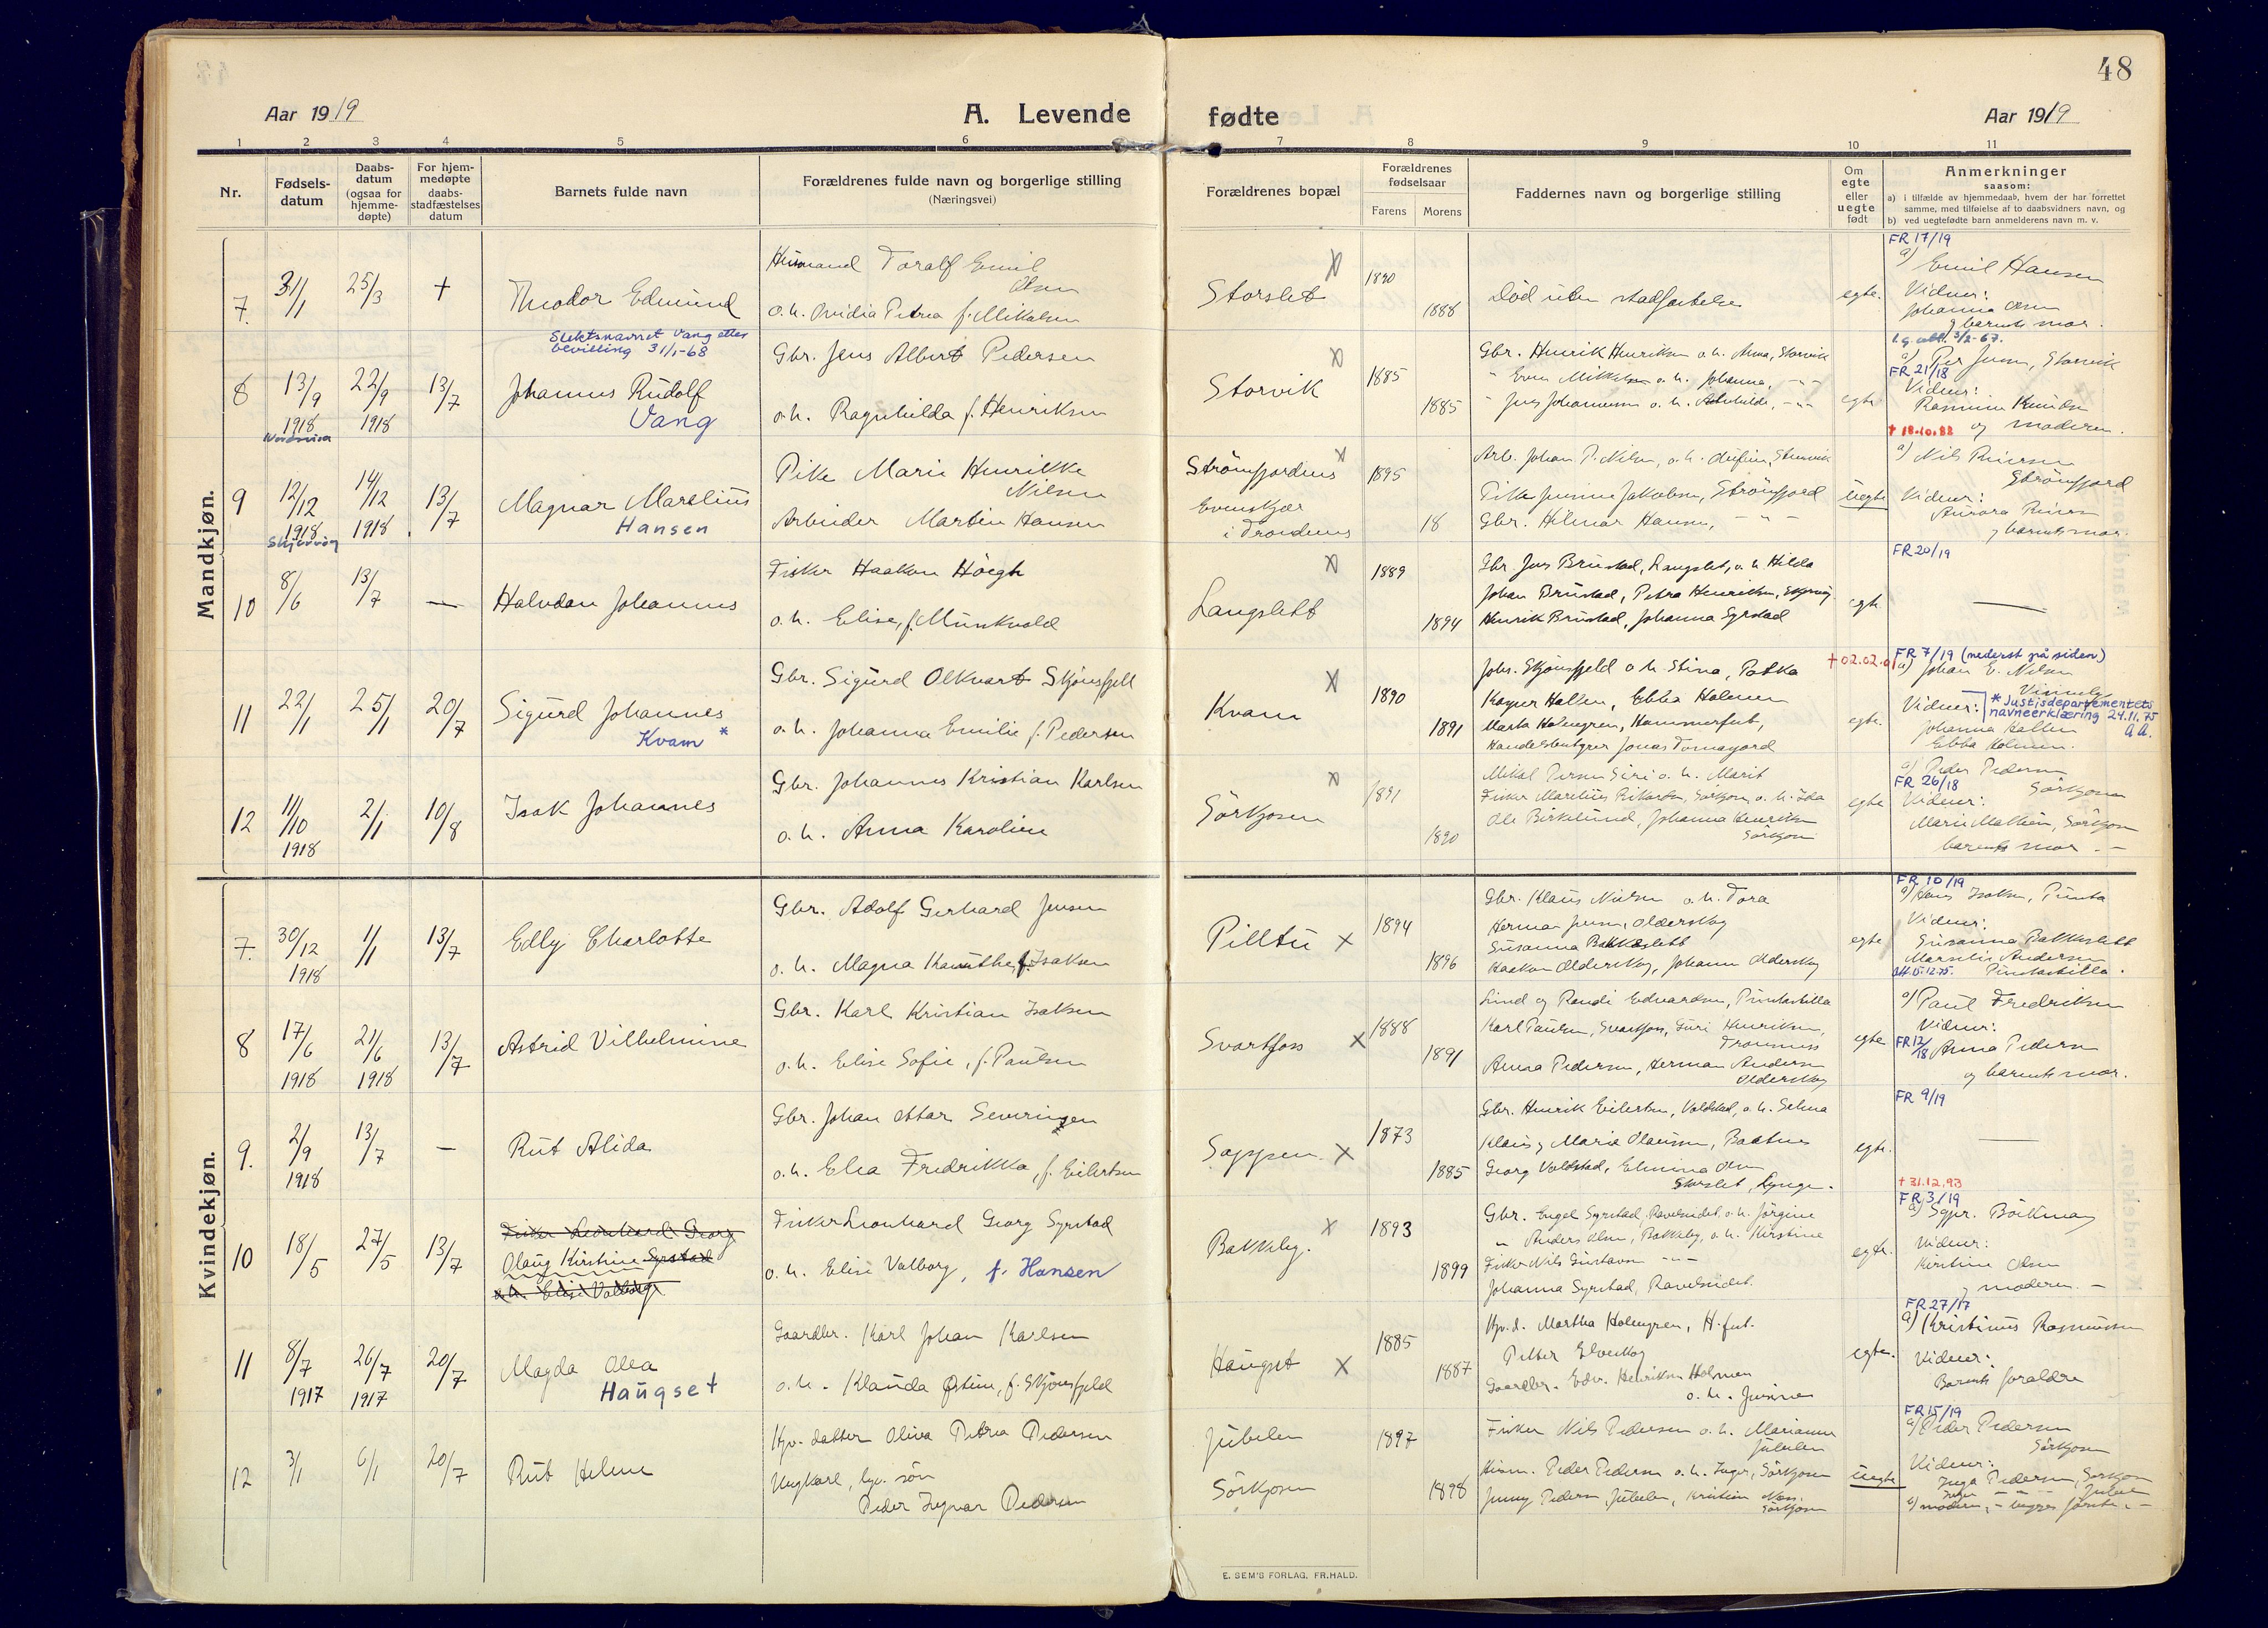 48
Aar 1919
A. Levende
fødte
Aar 1919
1 2 3 4 5 6 7 8 9 10 11
Nr.
Fødsels-
datum
Daabs-
datum
(ogsaa for
hjemme-
døpte)
For hjem-
medøpte
daabs-
stadfæstelses
datum
Barnets fulde navn
Forældrenes fulde navn og borgerlige stilling
(Næringsvei)
Forældrenes bopæl
Forældrenes
fødselsaar
Farens Morens
Faddernes navn og borgerlige stilling
Om
egte
eller
uegte
født
Anmerkninger
saasom:
a) i tilfælde av hjemmedaab, hvem der har forrettet
samme, med tilføielse af to daabsvidners navn, og
b) ved uegtefødte barn anmelderens navn m. v.
Mandkjøn.
7.
31/1
25/3
+
Theodor Edmund
Toralf Emil
Olsen
o.h. Ovidia Petrea f. Mikalsen
Storslet
X
1890
1888
Død uten stadfæstelse
egte.
FR 17/19
a) Emil Hansen
Vidner:
Johanna Olsen
og barnets mor.
Slektsnavnet Vang etter
bevilling 31/1-68
8
13/9
1918
22/9
1918
13/7
Johannes Rudolf
Vang
Gbr. Jens Albert Pedersen
o.h. Ragnhilda f. Henriksen
Storvik
X
1885
1885
Gbr. Henrik Henriksen o.h. Anna, Storvik
" Even Mikkelsen o.h. Johanna, -"-
" Jens Johannesen o.h.
egte
3/2-67.
a) Per Jensen, Storvik
FR 21/18
Vidner:
Rasmine Knudsen
og moderen.
+ 18.10.82
9
12/12
1918
Skjervøy
14/12
1918
13/7
Magnar Marelius
Hansen
Pike Marie Henrikke
Nilsen
Arbeider Martin Hansen
Strømfjordens
Evenskjær
i Trondenes
X
1895
18
Arb. Johan P. Nilsen, o.h.
Pike Jensine Jakobsen, Strømfjord
Gbr. Hilmar Hansen, -"-
uegte
a) Nils
Strømfjord
Vidner:
Aurora
og barnets mor.
10
8/6
13/7
—
Halvdan Johannes
Fisker Haakon Høegh
o.h. Elise, f. Munkvold
Langslett
X
1889
1894
Gbr. Jens Brustad, Langslet, o.h. Hilda
Johan Brustad, Petra Henriksen,
Henrik Brustad, Johanna Syrstad
egte
FR 20/19
—
11
22/1
25/1
20/7
Sigurd Johannes
Kvam *
Gbr. Sigurd Olkvart Skjønsfjell
o.h. Johanna Emilie f. Pedersen
Kvam
X
1890
1891
Johs. Skjønsfjeld o.h. Stina,
Hallen, Ebba Holmen
Marta Holmgren, Hammerfest,
Jonas
+ 02.02.01
egte.
FR 7/19 (nederst på siden)
a) Johan E. Nilsen
Vidner:
* Justisdepartementets
navneerklæring 24.11.75
Johanna Hallen
Ebba Holmen.
12
11/10
1918
2/1
10/8
Isak Johannes
Gbr. Johannes Kristian Karlsen
o.h. Anna Karoline
Sørkjosen
X
1891
1890
Mikal o.h. Marit
Fisker Marelius Rikardsen, Sørkjosen, o.h. Ida
Ole Birkelund, Johanna Henriksen
Sørkjosen
egte
a) Peder Pedersen
FR 26/18
Sørkjosen
Vidner:
Marie Mathisen, Sørkjosen
barnets mor -"-
Kvindekjøn.
7.
30/12
1918
1/1
13/7
Edly Charlotte
Gbr. Adolf Gerhard Jensen
o.h. Magna Isaksen
Pilttu X
1894
1896
Gbr. Klaus Nilsen o.h. Tora
Herman Jensen, Olderskog
Susanna Bakkeslett
Haakon Olderskog, Johanna Olderskog
egte
FR 10/19
a) Hans Isaksen, Punta
Vidner:
Susanna Bakkeslett
Marselis Andersen
att. 15.12.75
8
17/6
1918
21/6
1918
13/7
Astrid Vilhelmine
Gbr. Karl Kristian Isaksen
o.h. Elise Sofie, f. Paulsen
Svartfoss X
1888
1891
og Randi Edvardsen,
Karl Paulsen, Svartfoss, Guri Henriksen,
Anna Pedersen, Herman Andersen
Olderskog
egte
a) Paul Fredriksen
Vidner:
FR 12/18
Anna Pedersen
og barnets mor.
9.
2/9
1918
13/7
—
Rut Alida
Gbr. Johan Ottar Severinsen
o.h. Elea Fredrikka, f. Eilertsen
Sappen X
1873
1885
Gbr. Henrik Eilertsen, Voldstad, o.h. Selma
Klaus og Marie Olaussen, Baatnes
Georg Voldstad, Elmina Olsen
Storslet, Lyngen.
egte.
FR 9/19
—
10
18/5
27/5
13/7
Fisker Leonhard Georg
Olaug Kirstine Syrstad
o.h. Elise Valborg
Fisker Leonhard Georg Syrstad
o.h. Elise Valborg, f. Hansen
Bakkeby.
X
1893
1899
Gbr. Engel Syrstad, Ravelseidet, o.h. Jørgine
" Anders Olsen, Bakkeby, o.h. Kirstine
Fisker Nils Gustavsen -"-
Johanna Syrstad, Ravelseidet.
egte.
+ 31.12.93
FR 3/19
a) Sgpr. Bøckman
Vidner:
Kirstine Olsen
og moderen. -
11
8/7
1917
26/7
1917
20/7
Magda Olea
Haugset
Gaardbr. Karl Johan Karlsen
o.h. Klauda Østine, f. Skjønsfjeld
Haugset X
1885
1887
Kjv.d. Martha Holmgren, H.fest.
Petter Elveskog
Gaardbr. Edv. Henriksen Holmen
o.h. Jensine
egte.
FR 27/17
a) Kristinus Rasmussen
Vidner:
Barnets forældre
12
3/1
6/1
20/7
Rut Helene
Gbr. datter Oliva Petrea Pedersen
Ungkarl, søn
Peder Ingvar Pedersen
Jubelen
Sørkjosen
1897
1898
Fisker Nils Pedersen o.h. Marianne
Jubelen
Peder Pedersen o.h. Inger, Sørkjosen
Jenny Pedersen, Jubelen, Kristian
Sørkjosen
uegte
FR 15/19
a) Peder Pedersen
Sørkjosen
Vidner:
Inga Pedersen, Sørkjosen
E. SEM'S FORLAG, FR.HALD.